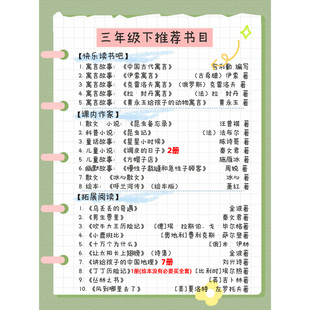 三年级下推荐书目
【快乐读书吧】
1. 寓言故事：《中国古代寓言》 编写
2. 寓言故事：《伊索寓言》 （古希腊）伊索 著
3. 寓言故事：《克雷洛夫寓言》（俄罗斯）克雷洛夫 著
4. 寓言故事：《拉·封丹寓言》 （法）拉·封丹 著
5. 寓言故事：《黄永玉给孩子的动物寓言》 黄永玉 著
【课内作家】
1. 散文 小说：《昆虫备忘录》 汪曾祺 著
2. 科普小说：《昆虫记》 （法）法布尔 著
3. 童话故事：《星星小时候》 陈诗哥 著
4. 儿童小说：《调皮的日子》2册 秦文君 著
5. 儿童故事：《方帽子店》 施雁冰 著
6. 幽默故事：《慢性子裁缝和急性子顾客》 周锐 著
7. 散文：《冰心散文》 冰心 著
8. 绘本：《呼兰河传》（绘本版） 萧红 著
【拓展阅读】
1.《乌丢丢的奇遇》 金波 著
2.《男生贾里》 秦文君 著
3.《吹牛大王历险记》 【德】埃·拉斯伯、戈·毕尔格著
4.《小鹿斑比》 【奥地利】费利克斯·萨尔登 著
5.《十万个为什么》 【俄】米·伊林
6.《让太阳长上翅膀》（诗集） 金波 著
7.《讲给孩子的中国地理》7册 刘兴诗 著
8.《丁丁历险记》1册(绘本没有必要买全套)【比利时】埃尔热著
9.《丛林之书》 【英】吉卜林 著
10.《风到哪里去了》 【美】夏洛特·左罗托夫 著